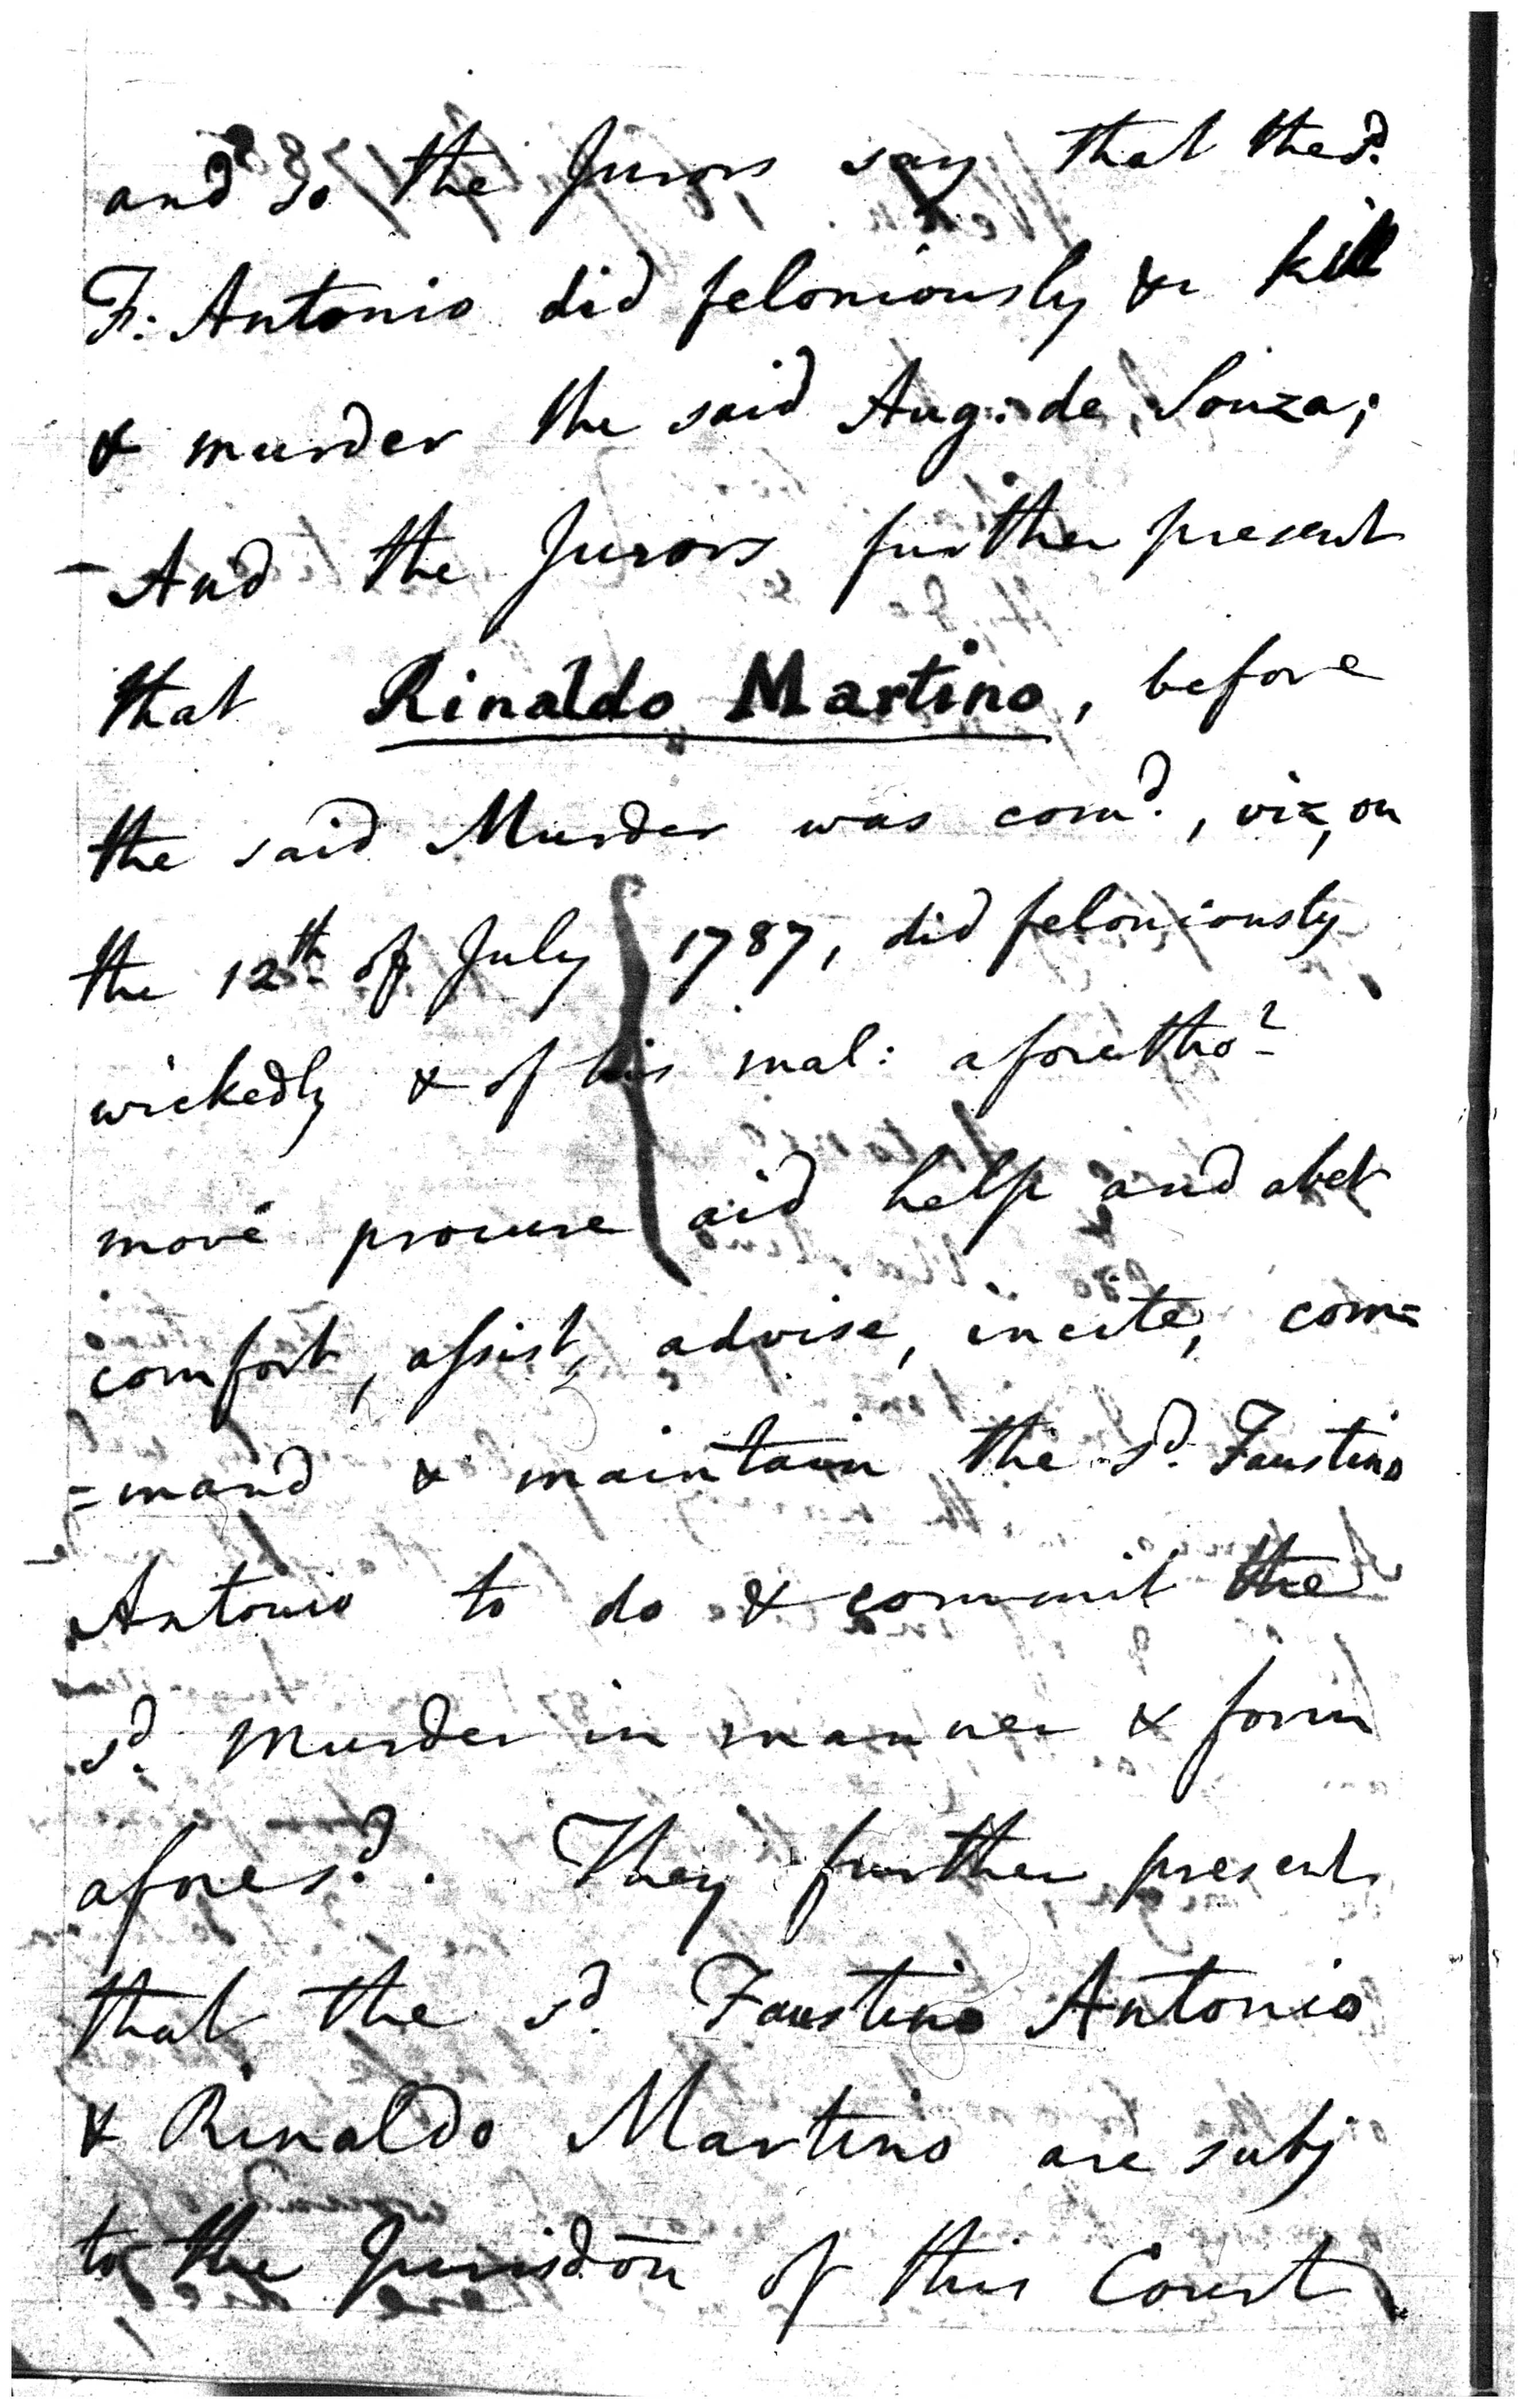 and so the Jurors say that the sd.
F: Antonio did feloniously &c kill
& murder the said Aug: de Souza;
- And the Jurors further present
that Rinaldo Martino, before
the said Murder was comd., viz, on
the 12th of July 1787, did feloniously
wickedly & of his mal: aforetho't
move procure aid help and abet
comfort, assist, advise, incite, com=
=mand & maintain the sd. Faustino
Antonio to do & commit the
sd. Murder in manner & form
afores'd. They further present
that the sd. Faustino Antonio
& Rinaldo Martino are subj
to the Jurisdon of this Court